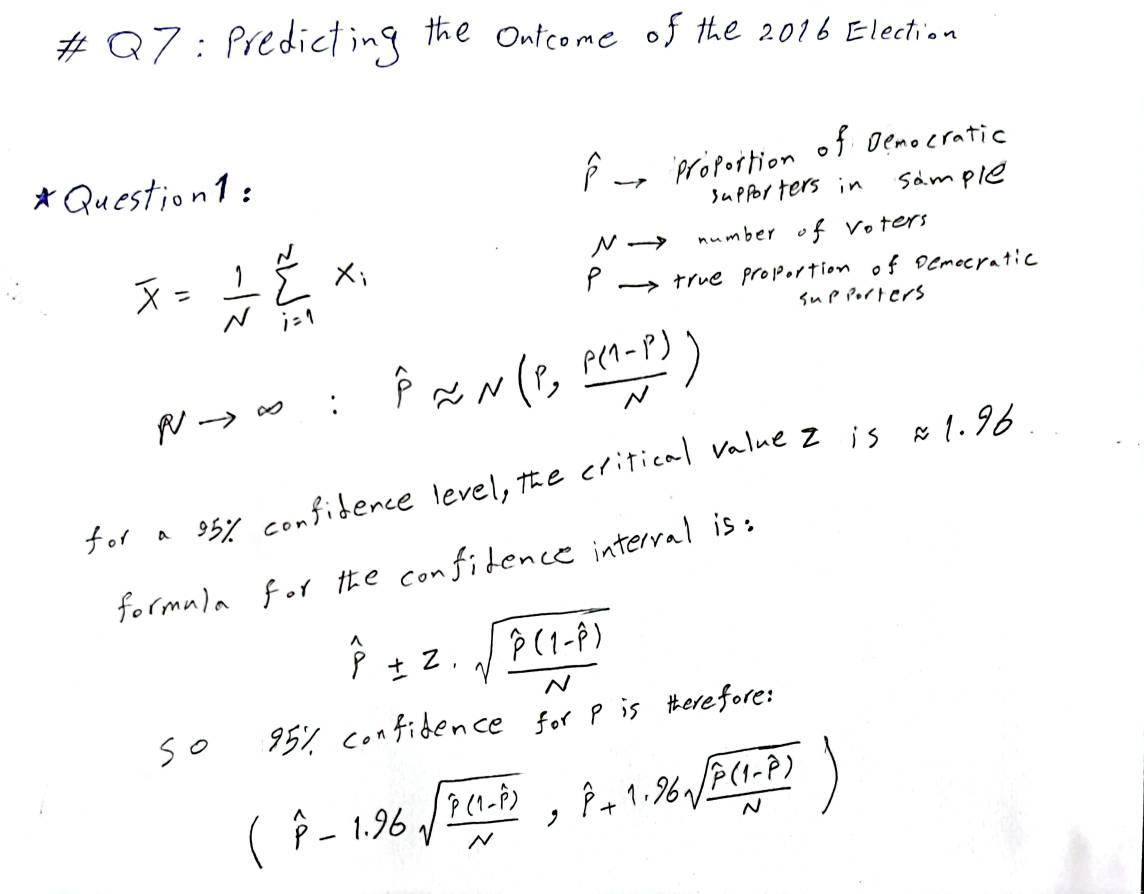 # Q7 : Predicting the Outcome of the 2016 Election
* Question 1 :
p̂ → proportion of Democratic
supporters in sample
N → number of voters
P → true proportion of Democratic
supporters
X̄ = 1/N Σ_{i=1}^{N} X_i
N → ∞ : p̂ ≈ N(P, P(1-P)/N)
for a 95% confidence level, the critical value z is ≈ 1.96
formula for the confidence interval is :
p̂ ± z . √(p̂(1-p̂)/N)
so 95% confidence for P is therefore:
( p̂ - 1.96 √(p̂(1-p̂)/N) , p̂ + 1.96 √(p̂(1-p̂)/N) )